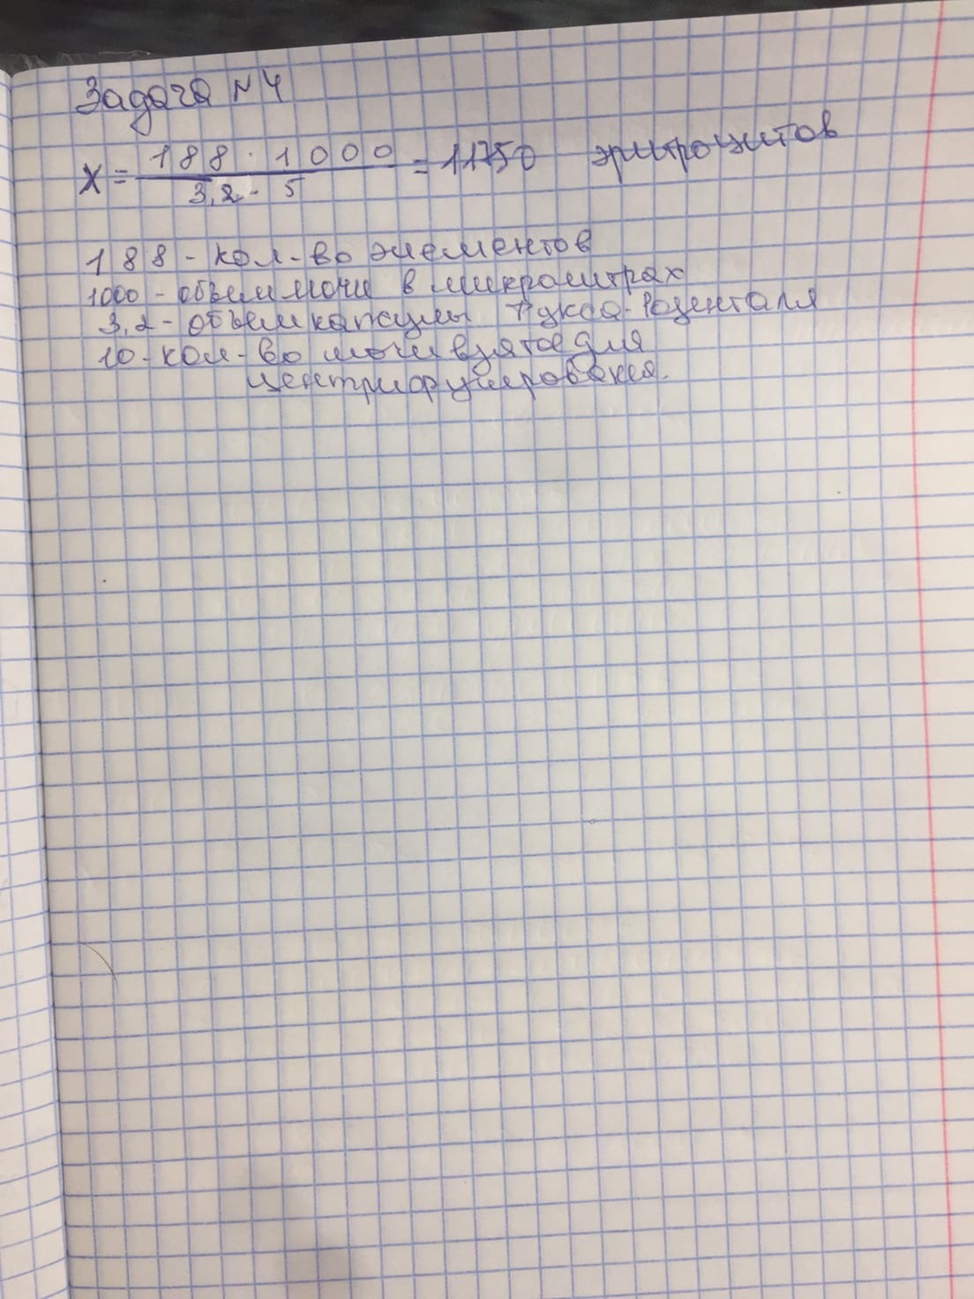 Задача №4
x = 188 · 1000 / 3,2 · 5 = 11750 эритроцитов
188 - кол-во элементов
1000 - объем мочи в микролитрах
3,2 - объем капсулы Фукса-Розенталя
10 - кол-во мочи взятое для
центрифугировакия.